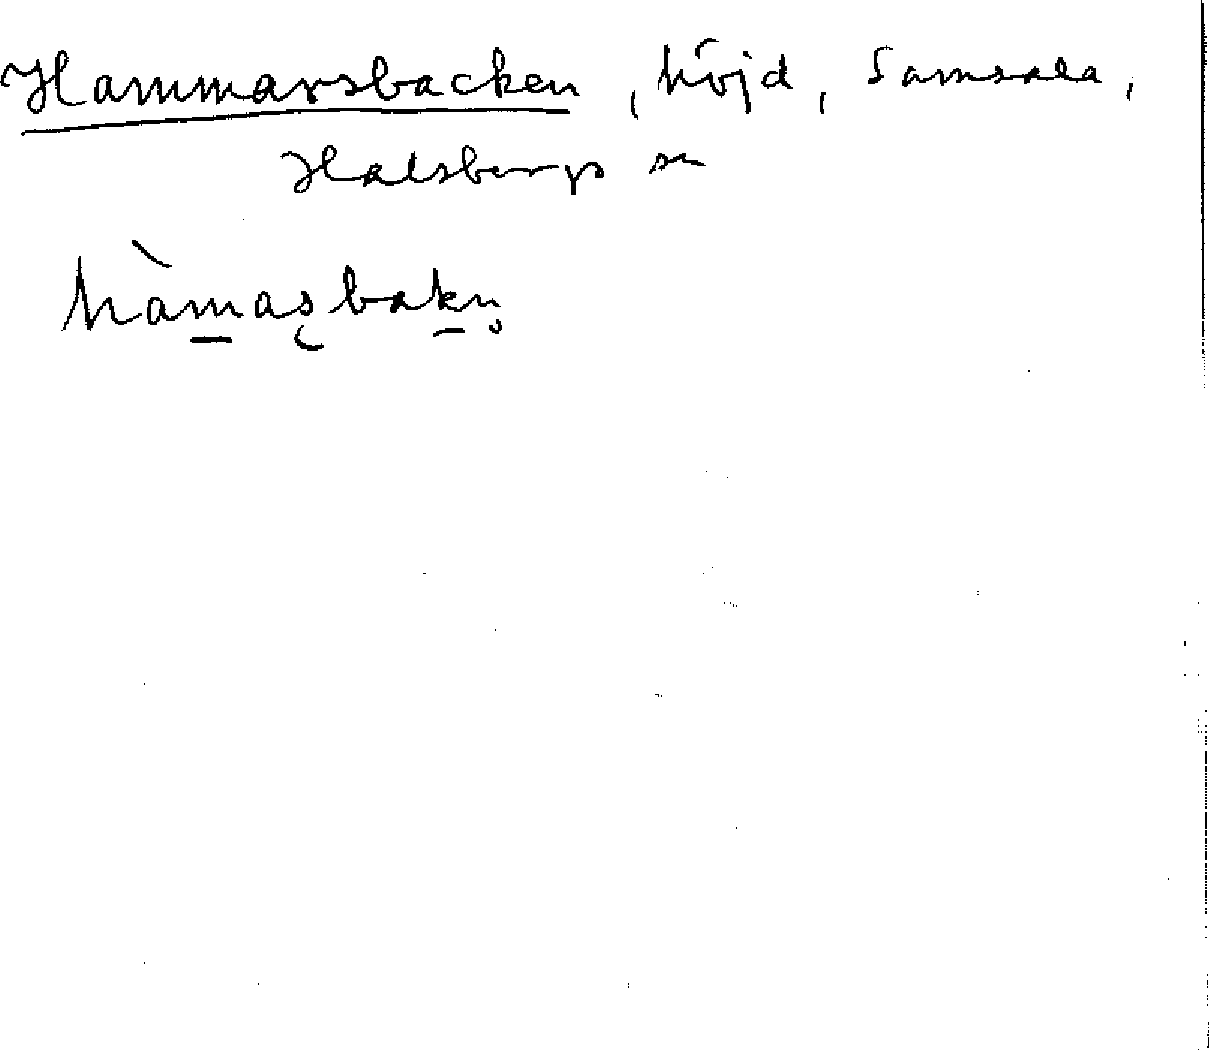 Hammarsbacken, höjd, Samsala,
Halsbergs sn
hàm̲aş bak̲n̥